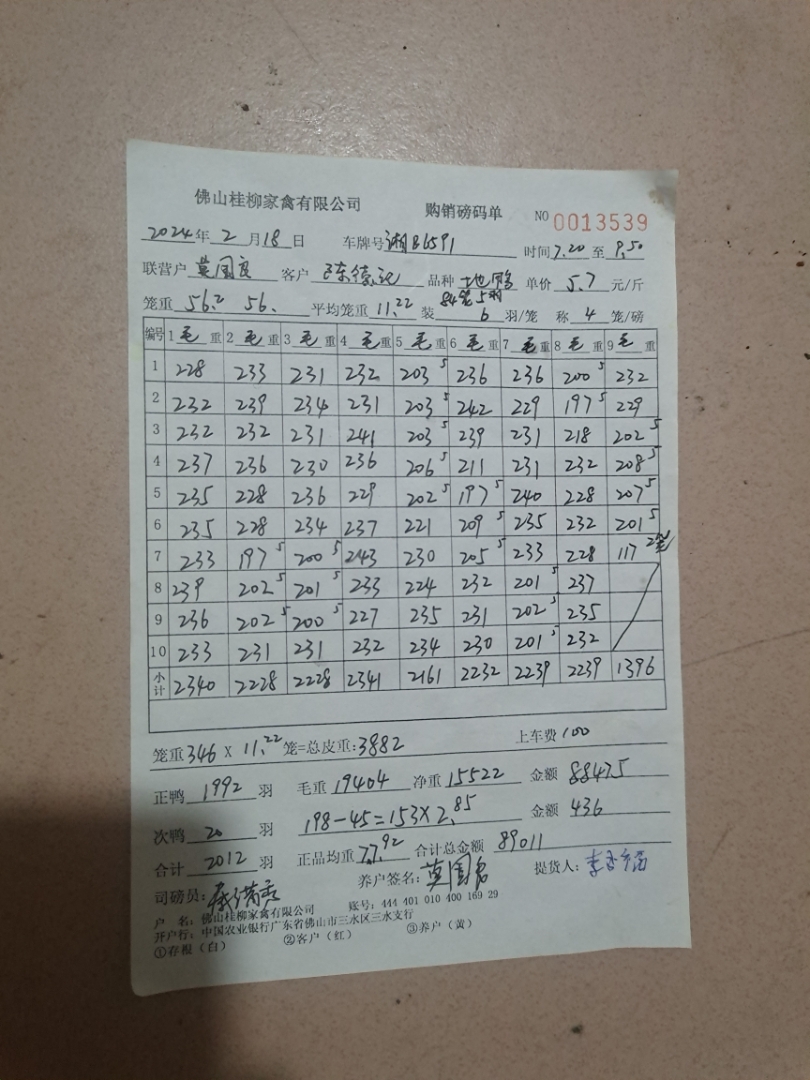 佛山桂柳家禽有限公司 购销磅码单 NO 0013539
2024年 2 月 18 日 车牌号 湘B6591 时间 7.20 至 9.50
联营户 莫国良 客户 陈德记 品种 地鸭 单价 5.7 元/斤
84笼5羽
笼重 56.2 56. 平均笼重 11.22 装 6 羽/笼 称 4 笼/磅
编号 1 毛 重 2 毛 重 3 毛 重 4 毛 重 5 毛 重 6 毛 重 7 毛 重 8 毛 重 9 毛 重
1 228 233 231 232 203 5 236 236 200 5 232
2 232 239 234 231 203 5 242 229 197 5 229
3 232 232 231 241 203 5 239 231 218 202 5
4 237 236 230 236 206 5 211 231 232 208 5
5 235 228 236 229 202 5 197 5 240 228 207 5
6 235 228 234 237 221 209 5 235 232 201 5
7 233 197 5 200 5 243 230 205 5 233 228 117 2笼
8 239 202 5 201 5 233 224 232 201 5 237
9 236 202 5 200 5 227 235 231 202 5 235
10 233 231 231 232 234 230 201 5 232
小计 2340 2228 2228 2341 2161 2232 2239 2239 1396
笼重 346 X 11.22 笼=总皮重: 3882 上车费 100
正鸭 1992 羽 毛重 19404 净重 15522 金额 88475
次鸭 20 羽 198-45=153×2.85 金额 436
合计 2012 羽 正品均重 7.92 合计总金额 89011
司磅员: 养户签名: 莫国良 提货人:
户 名: 佛山桂柳家禽有限公司 账号: 444 401 010 400 169 29
开户行: 中国农业银行广东省佛山市三水区三水支行
①存根(白) ②客户(红) ③养户(黄)